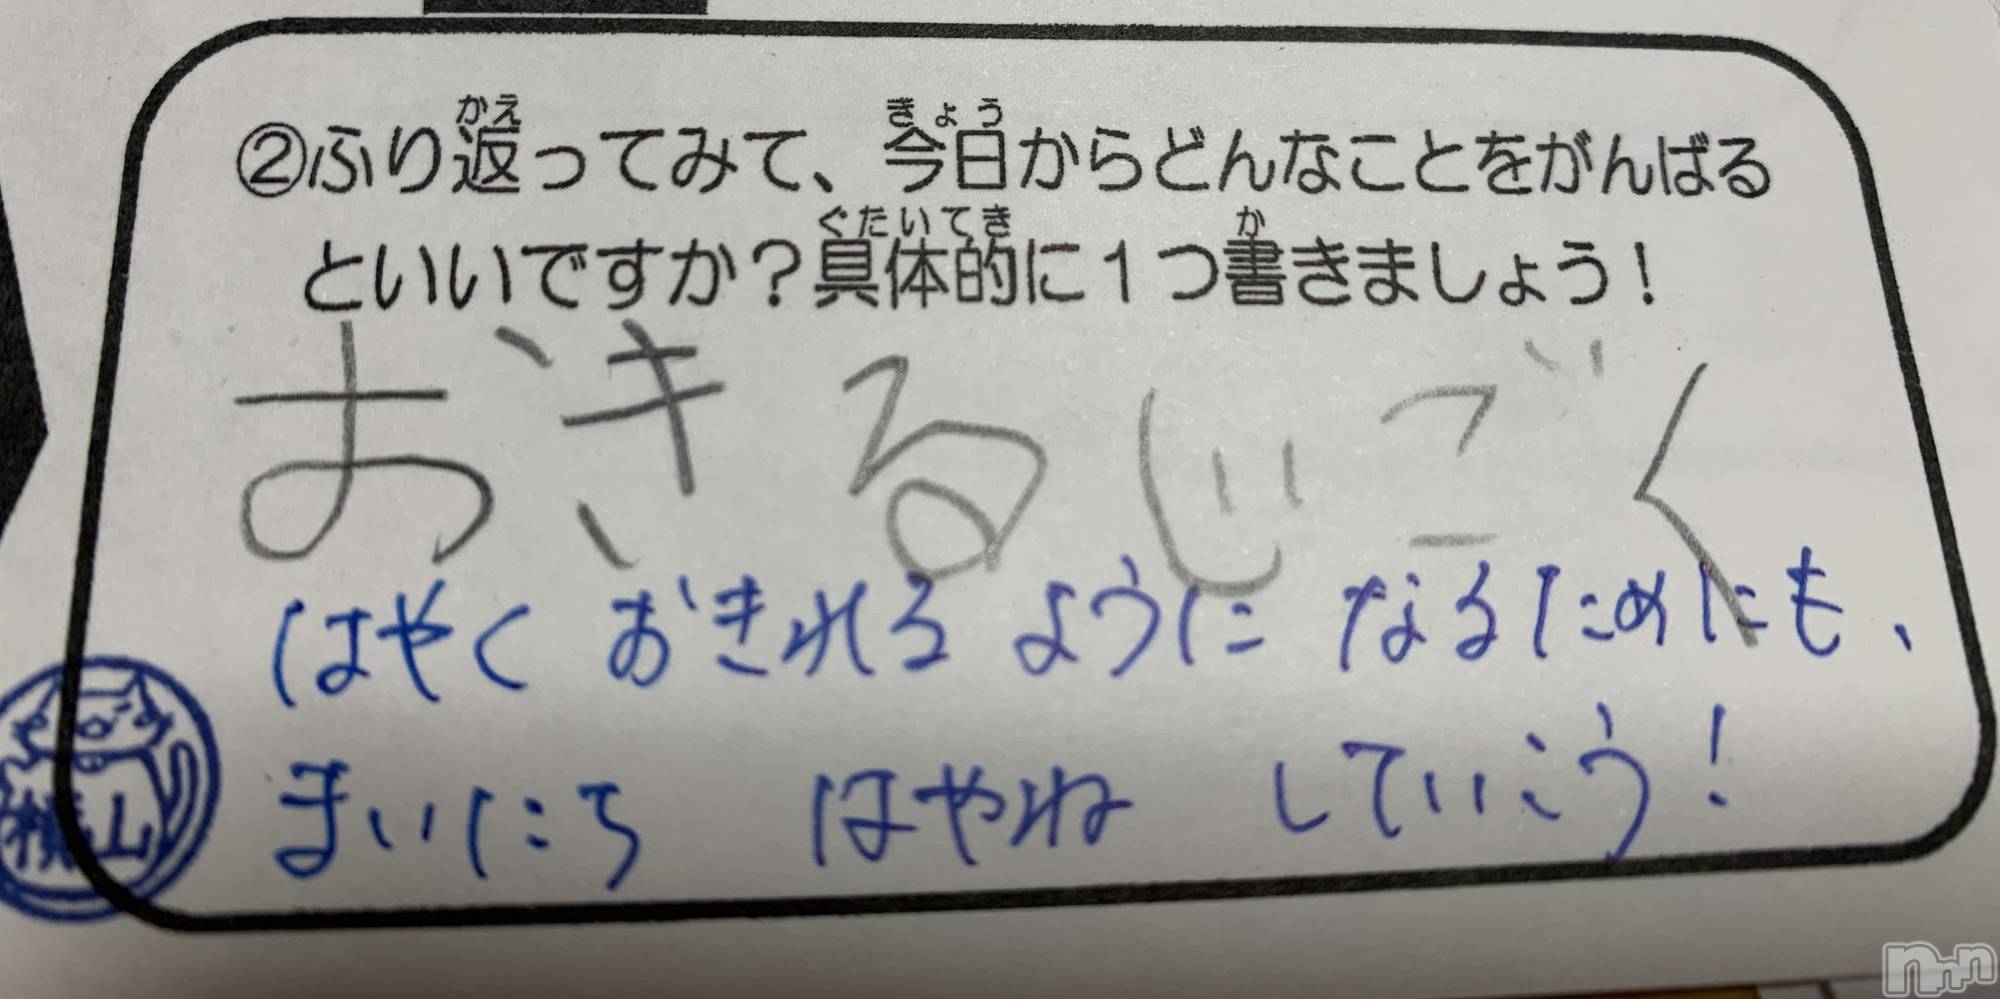 ②ふり返ってみて、今日からどんなことをがんばる
といいですか？具体的に１つ書きましょう！
おきるじごく
はやく おきれる ように なるためにも、
まいにち はやね していこう！
横山
nnn